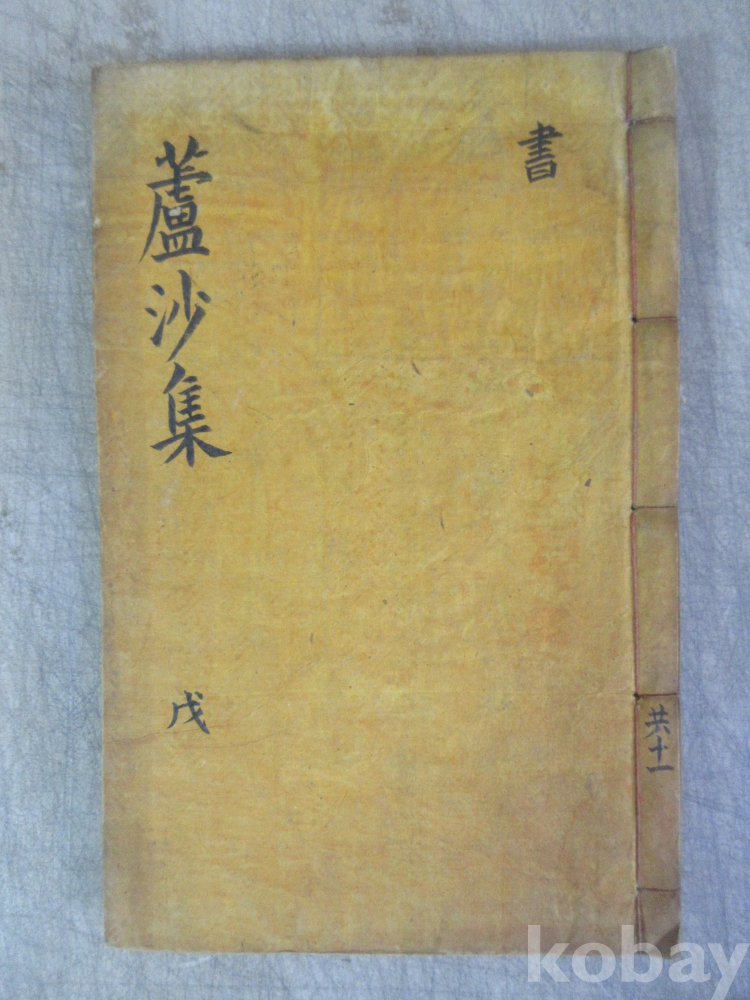 書
蘆沙集
戊
共十一
kobay